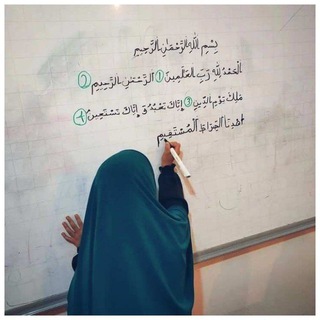 بِسْمِ اللهِ الرَّحْمَٰنِ الرَّحِيمِ
الْحَمْدُ لِلَّهِ رَبِّ الْعَالَمِينَ ① الرَّحْمَٰنِ الرَّحِيمِ ②
مَلِكِ يَوْمِ الدِّينِ ③ إِيَّاكَ نَعْبُدُ وَ إِيَّاكَ نَسْتَعِينُ ④
اهْدِنَا الصِّرَاطَ الْمُسْتَقِيمَ